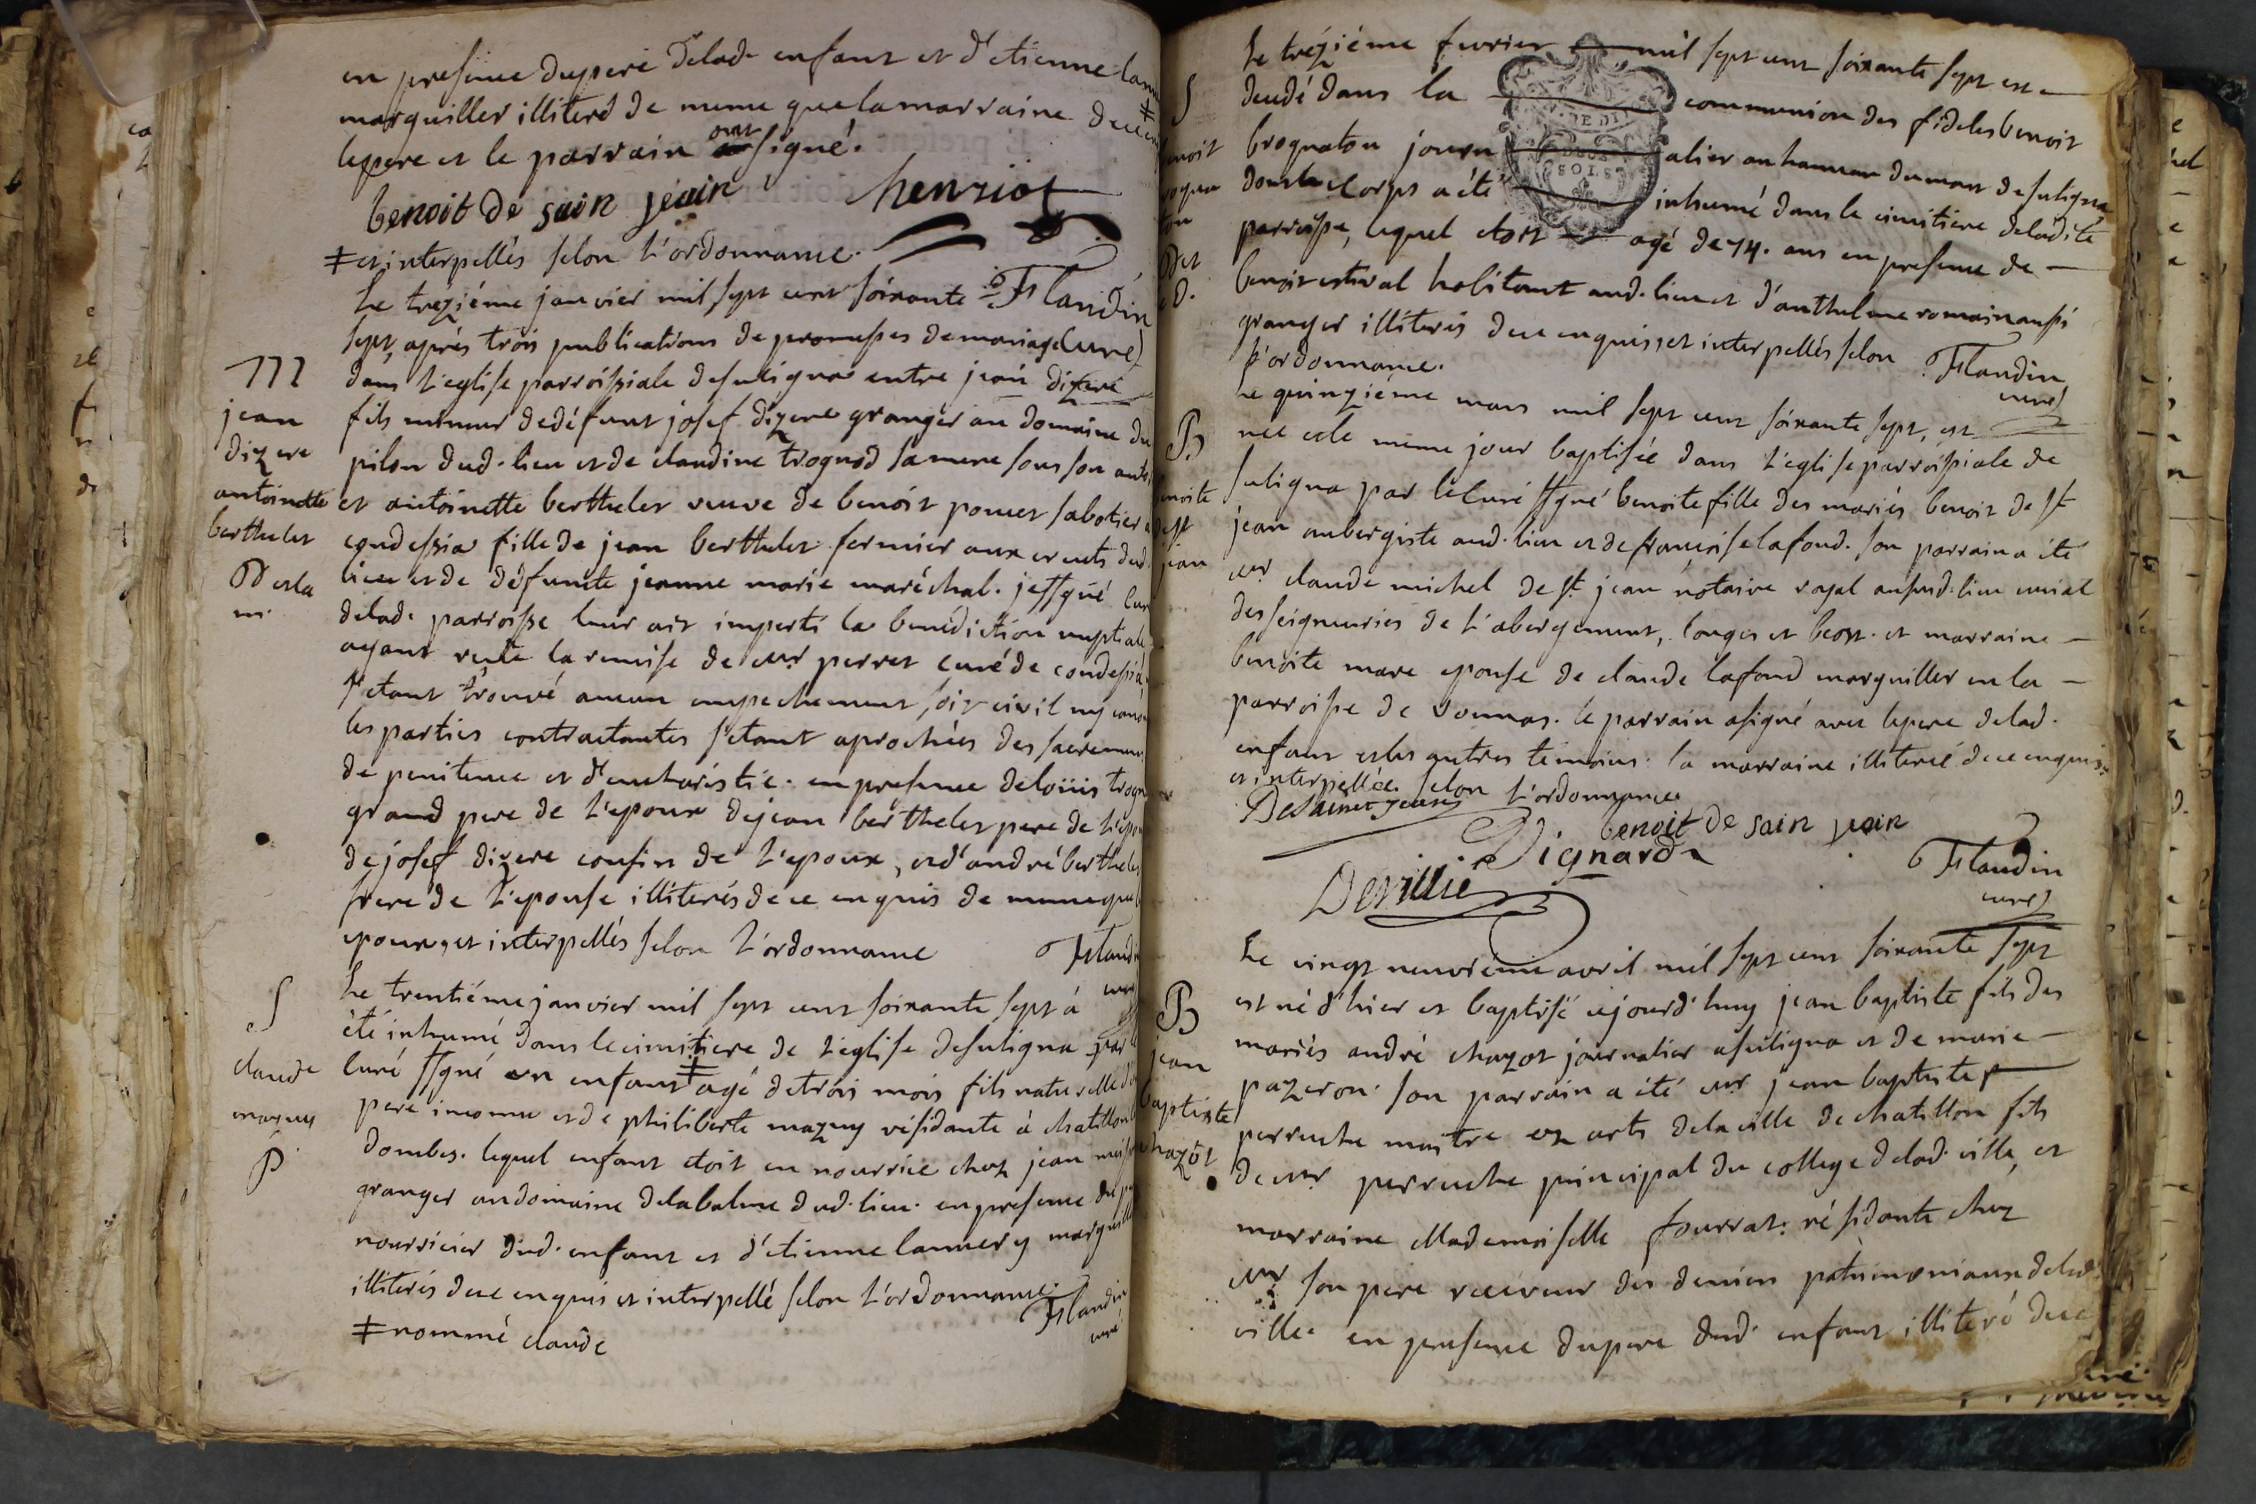 en presence du pere delad. enfant et d'etienne
marguiller illiteré de meme que la marraine de ce
le pere et le parrain ont signé.
benoit de sain jeain henriot
‡ et interpellés selon l'ordonnance.
Flandin
curé
Le trezième janvier mil sept cent soixante
sept, après trois publications de promesses de mariage
dans l'eglise parroissiale de suligna entre jean dizere
fils mineur de défunt josef dizere granger au domaine du
pilon dud. lieu et de claudine trognod sa mere sous son
et antoinette berthelet veuve de benoit poncet sabotier
condessia fille de jean berthelet fermier aux creuts dud.
lieu et de défunte jeanne marie maréchal. je ssgné
delad. parroisse leur ait imparti la benédiction nuptiale
ayant reçüe la remise de mr perret curé de condessia,
s'etant trouvé aucun empechement soit civil ny
les parties contractantes s'etant aprochées des
de penitence et d'eucharistie. en presence de loüis
grand pere de l'epoux de jean berthelet pere de
de josef dizere cousin de l'epoux, et d'andré
frere de l'epouse illiterés de ce enquis de meme que
epoux, et interpellés selon l'ordonnance
M
jean
dizere
antoinette
berthelet
Le trentiéme janvier mil sept cent soixante sept à
été inhumé dans le cimitiere de l'eglise de suligna par
curé ssgné un enfant ‡ agé de trois mois fils naturelle
pere inconnu et de philiberte mazuy résidante à chatillon
dombes. lequel enfant etoit en nourrice chez jean
granger au domaine de la balme dud. lieu. en presence du
nourricier dud. enfant et d'etienne lannery
illiterés de ce enquis et interpellé selon l'ordonnance
Flandin
curé
‡ nommé claude
S
claude
mazuy
P
Le trézième fevrier mil sept cent soixante sept est
decedé dans la communion des fideles benoit
brognaton journalier au hameau du mont de suligna
dont le corps a été inhumé dans le cimitiere deladite
parroisse, lequel etoit agé de 74. ans en presence de
benoit estival habitant aud. lieu et d'anthelme romain aussi
granger illiterés de ce enquis, et interpellés selon
l'ordonnance.
Flandin
curé
S
Le quinzième mars mil sept cent soixante sept, est
née et le meme jour baptisée dans l'eglise parroissiale de
suligna par le curé ssgné benoite fille des mariés benoit de st
jean aubergiste aud. lieu et de francoise lafond. son parrain a été
mr claude michel de st jean notaire royal aud. lieu
des seigneuries de l'abergement, longes et beost. et marraine
benoite mare epouse de claude lafond marguiller en la
parroisse de vonnas. le parrain a signé avec le pere delad.
enfant et les autres temoins. la marraine illiteré de ce
et interpellée selon l'ordonnance
De saint jean
benoit de sain jeain
Dignard
Devillie
Flandin
curé
B
Le vingt neuvieme avril mil sept cent soixante sept
est né d'hier et baptisé cejourd'huy jean baptiste fils des
mariés andré chazot journalier a suligna et de marie
pazeron. son parrain a été mr jean baptiste
perruche maitre ez arts de la ville de chatillon fils
de mr perruche principal du college delad. ville, et
marraine Mademoiselle fourrat. résidante chez
mr son pere receveur des deniers patrimoniaux
ville. en presence du pere dud. enfant illiteré de ce
B
jean
baptiste
chazot